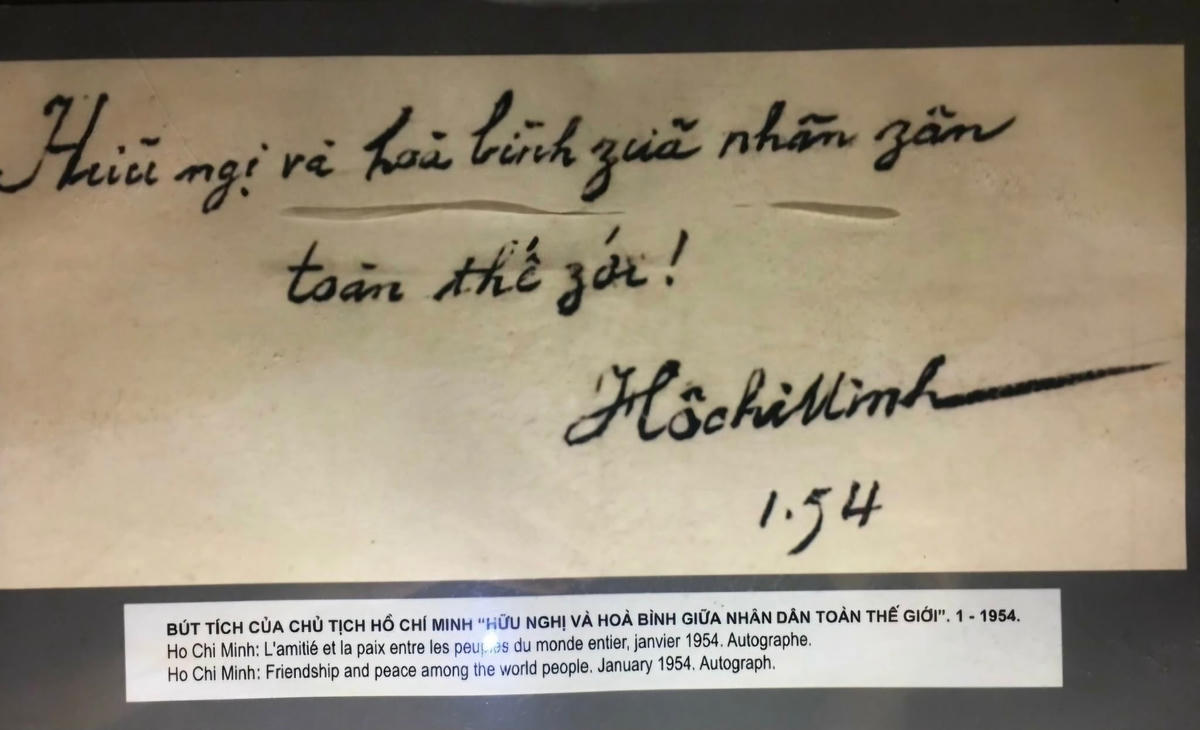 Hữu ngị và hoà bình zữa nhân zân
toàn thế zới!
Hồ chí Minh
1.54
BÚT TÍCH CỦA CHỦ TỊCH HỒ CHÍ MINH “HỮU NGHỊ VÀ HOÀ BÌNH GIỮA NHÂN DÂN TOÀN THẾ GIỚI”. 1 - 1954.
Ho Chi Minh: L'amitié et la paix entre les peuples du monde entier, janvier 1954. Autographe.
Ho Chi Minh: Friendship and peace among the world people. January 1954. Autograph.